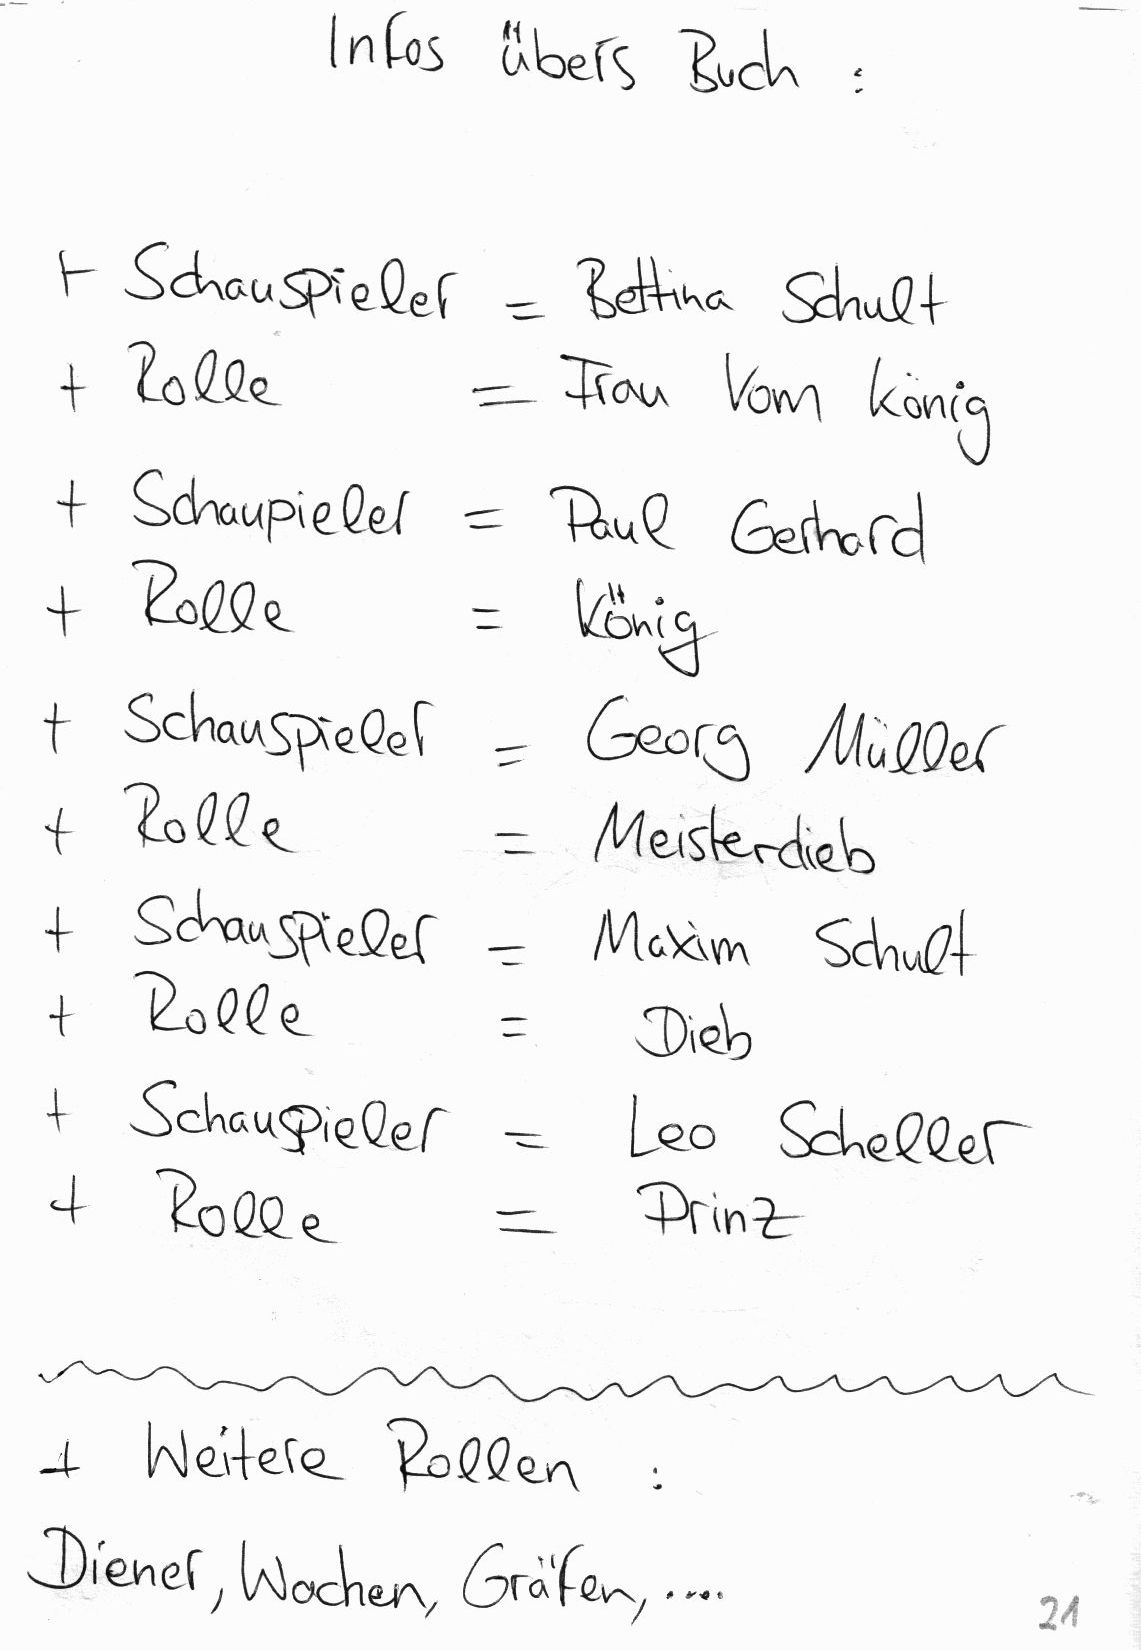 Infos übers Buch :
+ Schauspieler = Bettina Schult
+ Rolle = Frau vom König
+ Schaupieler = Paul Gerhard
+ Rolle = König
+ Schauspieler = Georg Müller
+ Rolle = Meisterdieb
+ Schauspieler = Maxim Schult
+ Rolle = Dieb
+ Schauspieler = Leo Scheller
+ Rolle = Prinz
+ Weitere Rollen :
Diener, Wachen, Gräfen, ....
21